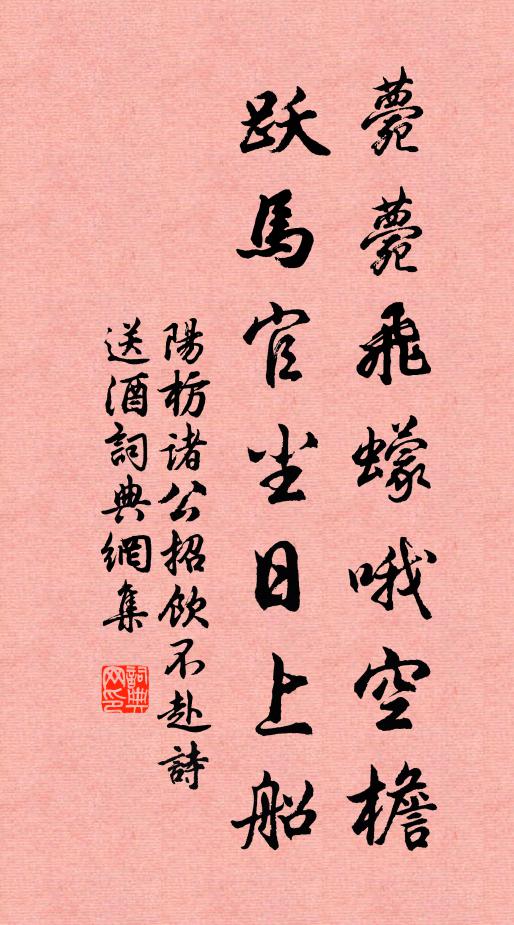 薨薨飛蠓哦空檐
跃馬官尘日上船
陽枋诸公招飲不赴詩
送酒詞典網集
詞典網印